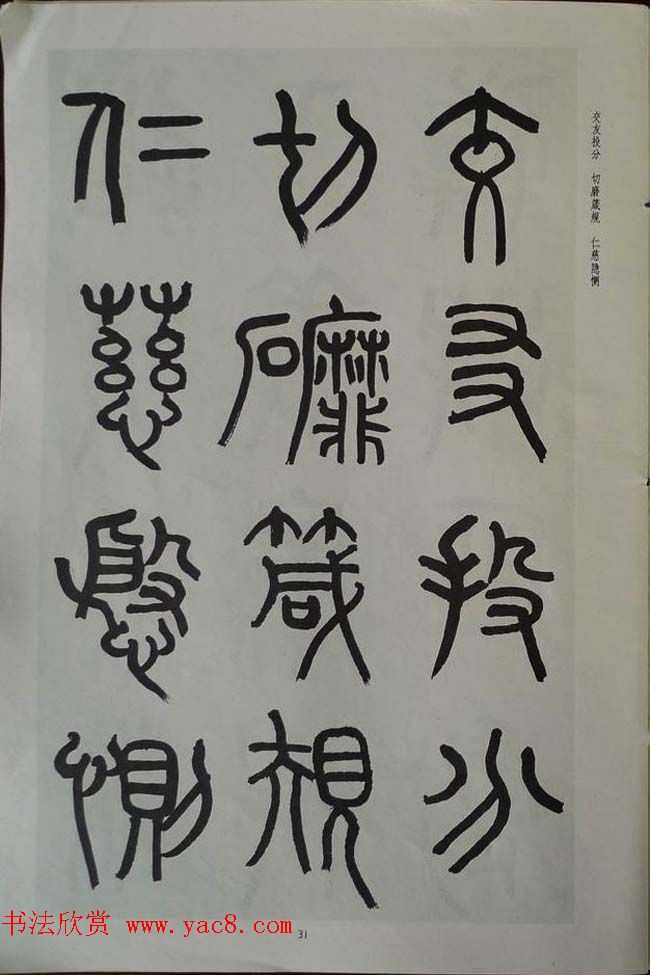 交友投分　切磨箴规　仁慈隐恻
交友投分
切磨箴規
仁慈慇惻
31
书法欣赏 www.yac8.com